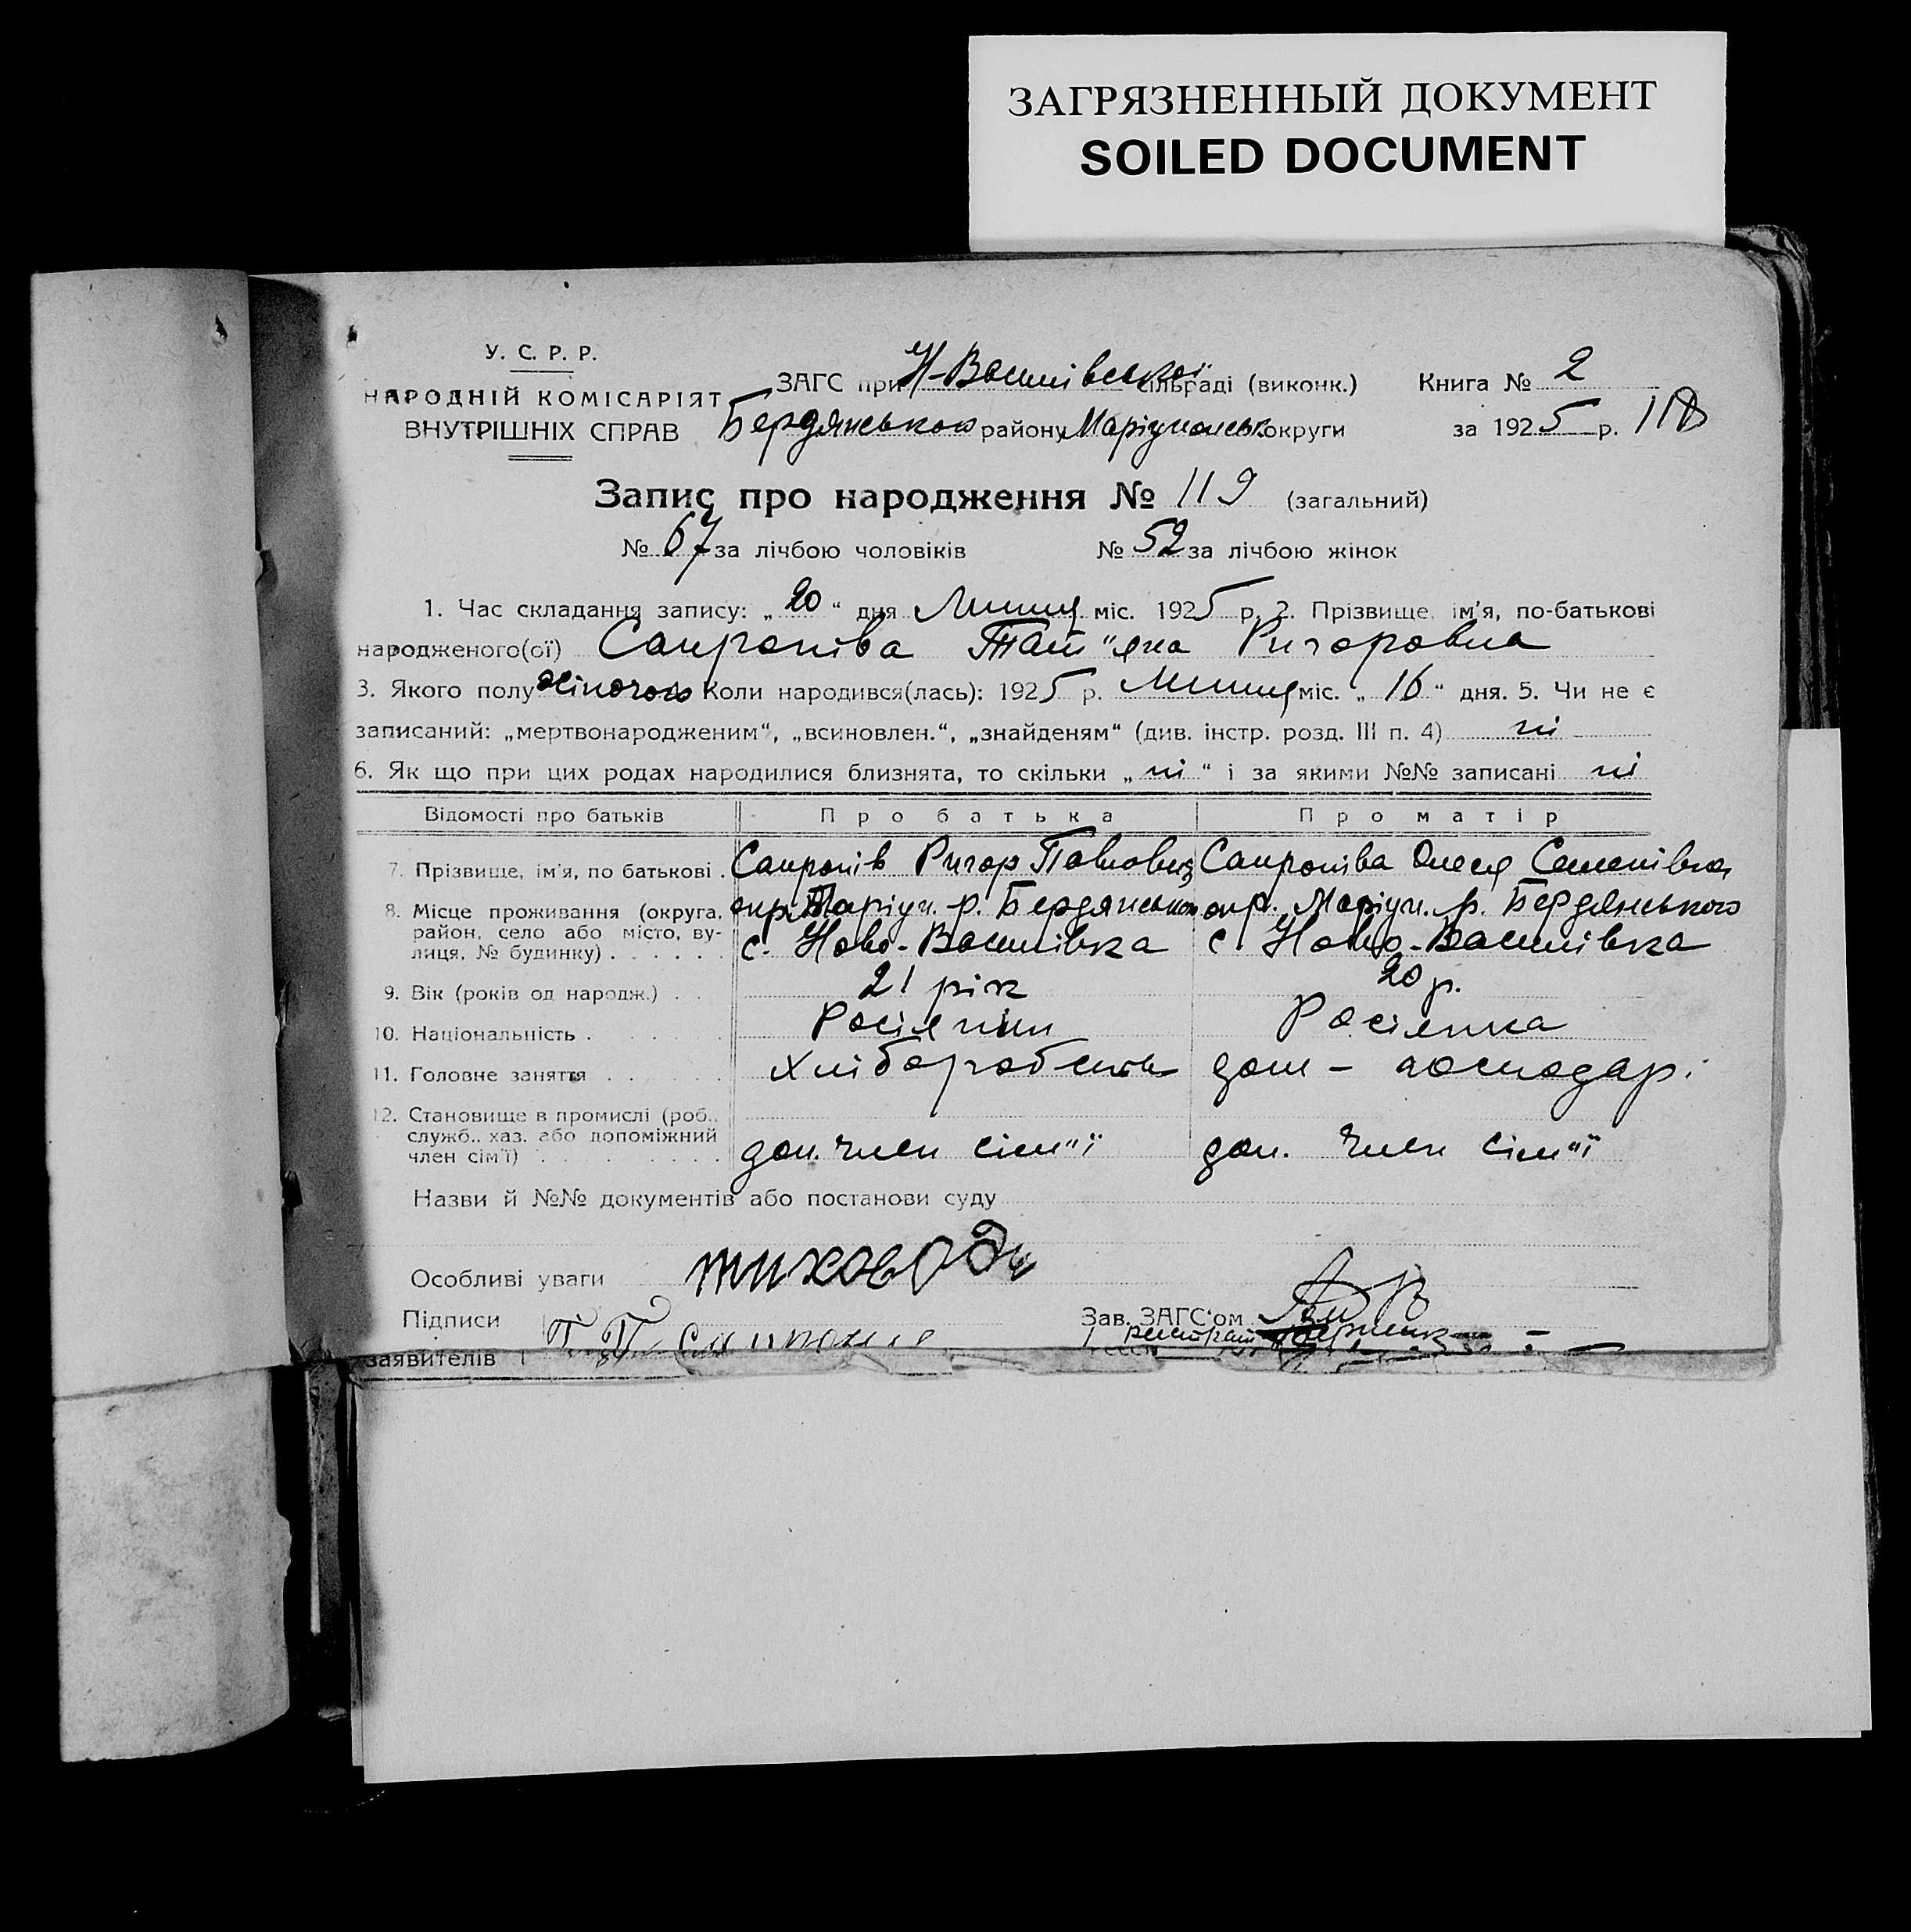 ЗАГРЯЗНЕННЫЙ ДОКУМЕНТ
SOILED DOCUMENT
У. С. Р. Р.
НАРОДНІЙ КОМІСАРІЯТ
ВНУТРІШНІХ СПРАВ
ЗАГС при Н-Василівської сільраді (виконк.) Книга № 2
Бердянського району Маріупольськ округи за 1925 р. 118
Запис про народження № 119 (загальний)
№ 67 за лічбою чоловіків № 52 за лічбою жінок
1. Час складання запису: „20“ дня Липня міс. 1925 р. 2. Прізвище, ім'я, по-батькові
народженого(ої) Сапроніва Тат"яна Ригоровна
3. Якого полу жіночого Коли народився(лась): 1925 р. Липня міс. „16“ дня. 5. Чи не є
записаний: „мертвонародженим“, „всиновлен.“, „знайденям“ (див. інстр. розд. III п. 4) ні
6. Як що при цих родах народилися близнята, то скільки „ні“ і за якими №№ записані ні
Відомості про батьків Про батька Про матір
7. Прізвище, ім'я, по батькові . Сапронів Ригор Павлович Сапроніва Олеся Семенівна
8. Місце проживання (округа, окр. Маріуп. р. Бердянського окр. Маріуп. р. Бердянського
район, село або місто, ву-
лиця, № будинку) . . . . . . с. Ново-Василівка с. Ново-Василівка
9. Вік (років од народж.) . . 21 рік 20 р.
10. Національність . . . . . . Росіянин Росіянка
11. Головне заняття . . . . . . Хліборобство дом - господар.
12. Становище в промислі (роб.,
служб., хаз. або допоміжний
член сім'ї) . . . . . . . . . доп. член сім"ї доп. член сім"ї
Назви й №№ документів або постанови суду
Особливі уваги
Підписи
заявителів
Зав. ЗАГС'ом